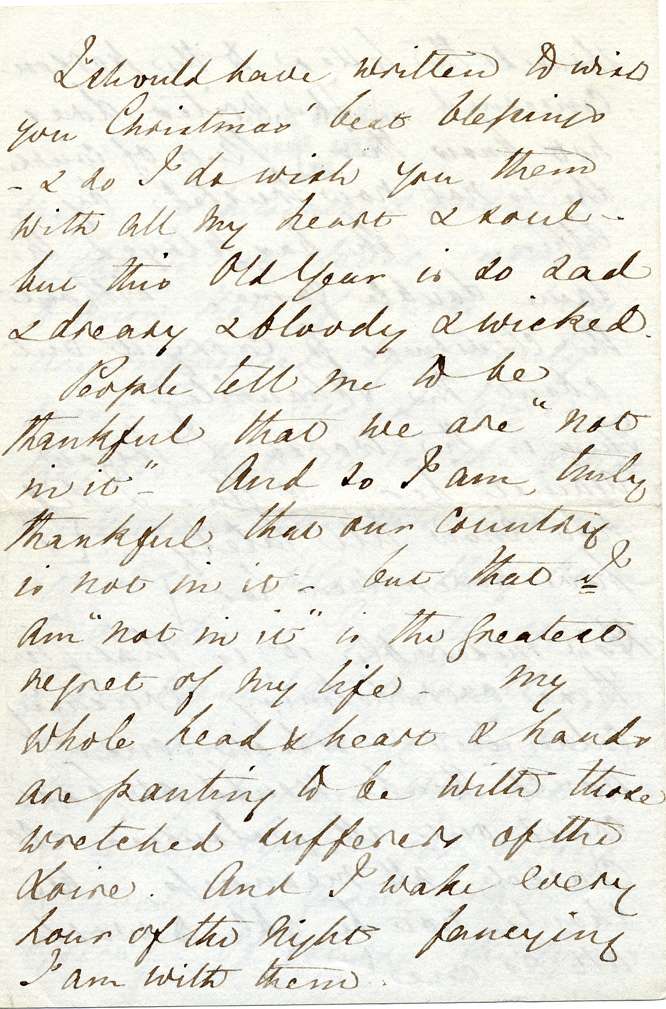 I should have written to wish
you Christmas' best blessings
- & so I do wish you them
with all my heart & soul -
but this Old Year is so sad
& dreary & bloody & wicked.
People tell me to be
thankful that we are "not
in it" - And so I am truly
thankful that our country
is not in it - but that I
am "not in it" is the greatest
regret of my life - My
whole head & heart & hands
are panting to be with those
wretched sufferers of the
Loire. And I wake every
hour of the night fancying
I am with them.